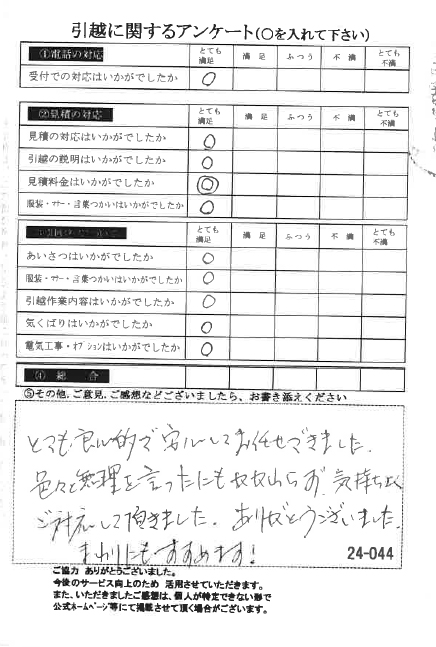 引越に関するアンケート(○を入れて下さい)
①電話の対応 とても満足 満足 ふつう 不満 とても不満
受付での対応はいかがでしたか ○
②見積の対応 とても満足 満足 ふつう 不満 とても不満
見積の対応はいかがでしたか ○
引越の説明はいかがでしたか ○
見積料金はいかがでしたか ◎
服装・マナー・言葉つかいはいかがでしたか ○
とても満足 満足 ふつう 不満 とても不満
あいさつはいかがでしたか ○
服装・マナー・言葉つかいはいかがでしたか ○
引越作業内容はいかがでしたか ○
気くばりはいかがでしたか ○
電気工事・オプションはいかがでしたか ○
(4) 総合
⑤その他、ご意見、ご感想などございましたら、お書き添えください
とても良心的で安心してお任せできました。
色々と無理を言ったにも 気持ちよく
ご対応して頂きました。ありがとうございました。
まわりにもすすめます!
24-044
ご協力 ありがとうございました。
今後のサービス向上のため 活用させていただきます。
また、いただきましたご感想は、個人が特定できない形で
公式ホームページ等にて掲載させて頂く場合がございます。